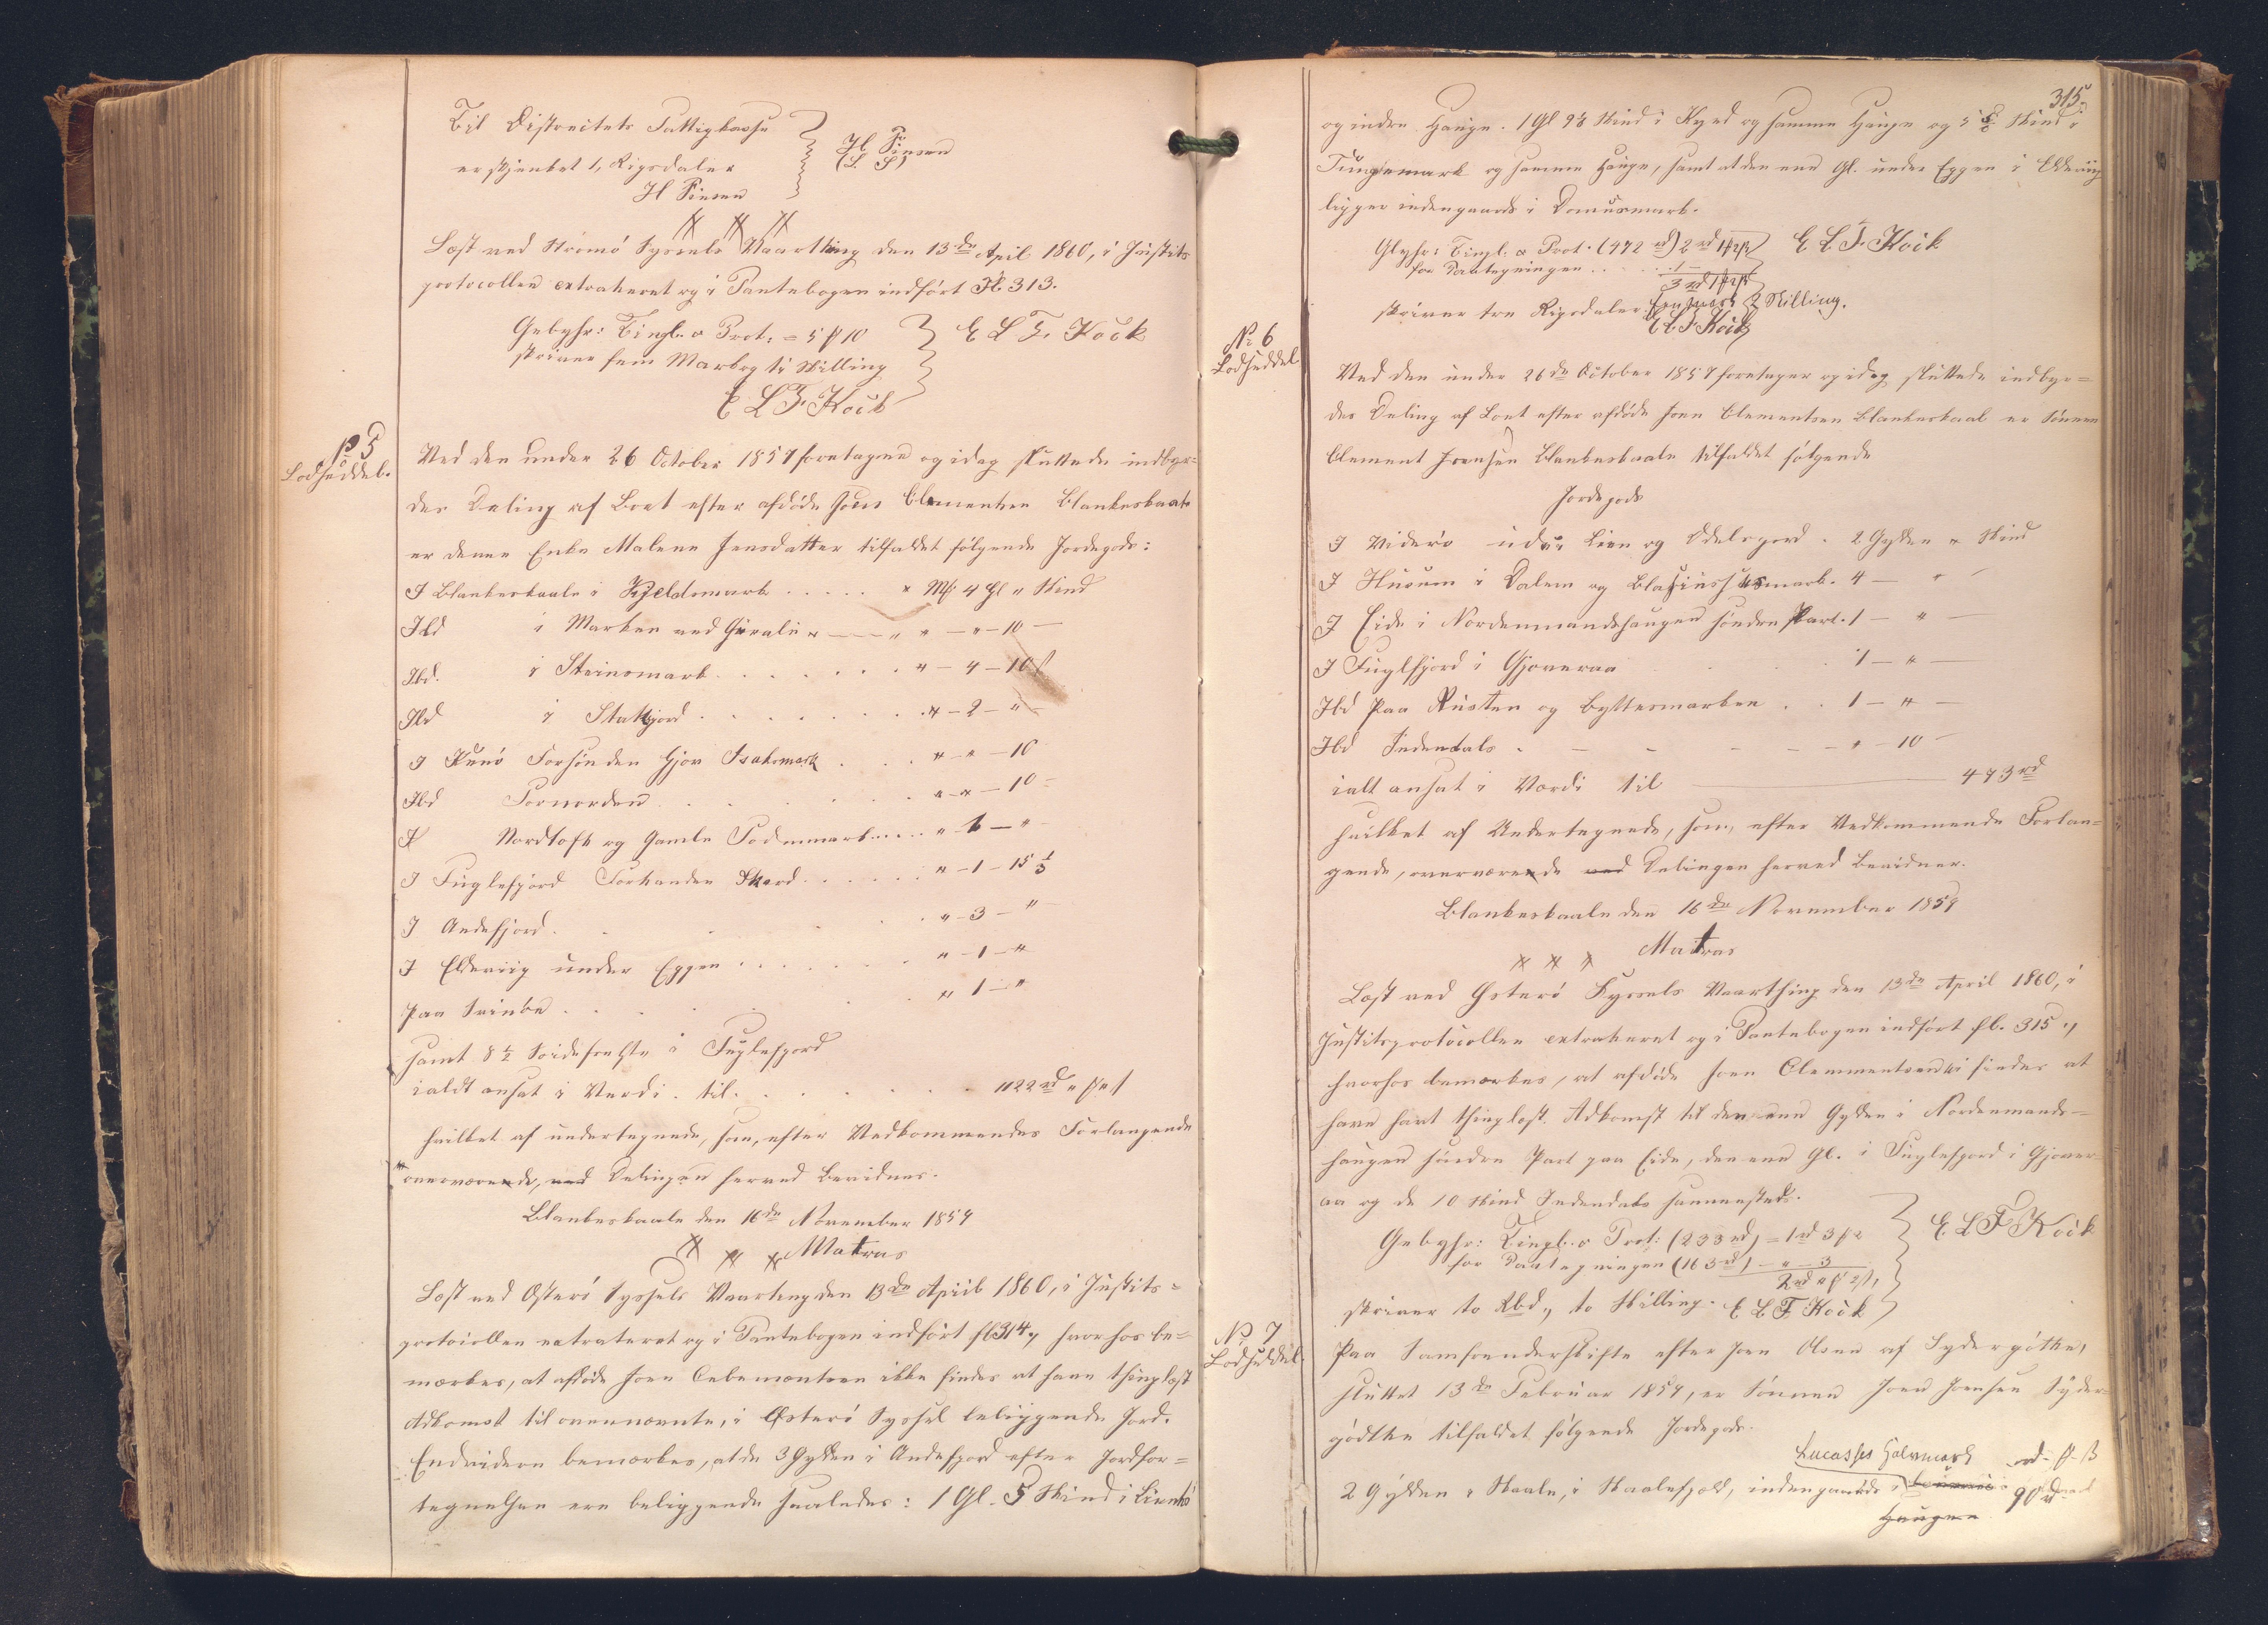 Til Districtets Fattigkasse
er skjenket 1, Rigsdaler
H Finsen
H Finsen
(L S)
Læst ved Strømø Syssels Vaarthing den 13de April 1860, i Justits
protocollen extraheret og i Pantebogen indført Fl 313.
Gebyhr: Tingl. o Prot. = 5 ꝟ 10
skriver fem Mark og ti Skilling
E L F. Kock
E L F. Kock
№ 5
Lodseddel.
Ved den under 26 October 1857 foretagne og idag sluttede indbyr=
des Deling af Boet efter afdøde Joen Clementsen Blankeskaale
er denne Enke Malene Jensdatter tilfaldet følgende Jordegods:
I Blankeskaale i Kjeldsmark . . . . . " Mk 4 Gl " Skind
Ibd i Marken ved " — " — 10 —
Ibd. i Steinsmark . . . . . . . " — 4 — 10
Ibd i . . . . . . . . " — 2 — " —
I Kunø Forsønden Gjov Isaksmark . . . " — " — 10
Ibd Fornorden . . . . . . . " — " — 10 —
Nordtoft og Gamle . . . . " — 1 — " —
I Fuglefjord Forhanden Skard . . . . . . " — 1 — 15 1/3
I Andefjord . . . . " — 3 — " —
I Eldeviig under Eggen . . . . . . . " — 1 — "
Paa Svinke . . . . . " 1 — "
samt 8 1/2 i Fuglefjord
ialdt ansat i Verdi til . . . . . . . 1122 rd " ꝟ " ß
hvilket af undertegnede, som, efter Vedkommendes Forlangende
overværende, ved Delingen herved bevidnes.
Blankeskaale den 16de November 1859
Matras
Læst ved Østerø Syssels Vaarting den 13de April 1860, i Justits=
protocollen extraheret og i Pantebogen indført fl 314, hvorhos be=
mærkes, at afdøde Joen Clementsen ikke findes at have thinglæst
Adkomst til ovennævnte, i Østerø Syssel beliggende Jord.
Endvidere bemærkes, at de 3 Gylden i Andefjord efter Jordfor=
tegnelsen ere beliggende saaledes: 1 Gl. 5 Skind i
315.
og indre Hauge. 1 Gl 98 Skind i og samme Hauge og 5 Skind i
Tungemark og samme Hauge, samt at den ene Gl. under Eggen i Eldeviig
ligger indengaards i Domusmark.
Gbyhr: Tingl. o Prot. (472 rd) 2 rd 1 ꝟ 2 ß
for Paategningen . . . . . 1 —
3 rd 1 ꝟ 2 ß
E L F. Kock
skriver tre Rigsdaler een Mark 2 Skilling.
E L F Kock
№ 6
Lodseddel
Ved den under 26de October 1857 foretagne og idag sluttede indbyr=
des Deling af Boet efter afdøde Joen Clementsen Blankeskaal er Sønnen
Clement Joensen Blankeskaale tilfaldet følgende
Jordegods
I Viderø uden Lien og Odelsjord . 2 Gylden " Skind
I Husum i Dalem og Blasiushusmark. 4 — " —
I Eide i Nordenmandshaugen søndre Part. 1 — " —
I Fuglfjord i Gjoveraa . . . 1 — " —
Ibd paa Rusten og Byttesmarken . . 1 — " —
Ibd Indendals . — — — — " — 10 —
ialt ansat i Værdi til 473 rd
hvilket af Undertegnede, som, efter Vedkommende Forlan=
gende, overværende ved Delingen herved bevidner.
Blankeskaale den 16de November 1859
Matras
Læst ved Østerø Syssels Vaarthing den 13de April 1860, i
Justitsprotocollen extraheret og i Pantebogen indført fl. 315.,
hvorhos bemærkes, at afdøde Joen Clemmentsen ei findes at
have havt thinglæst Adkomst til den ene Gylden i Nordenmands=
haugen søndre Part paa Eide, den ene Gl. i Fuglefjord i Gjover=
aa og de 10 Skind Indendals sammesteds.
Gebyhr: Tingl. o Prot: (233 rd) = 1 rd 3 ꝟ 2
for Paategningen (163 rd) — " — 3
2 rd " ꝟ 2 ß,
E. L F Kock
skriver to Rbd., to Skilling. E L F Kock
№ 7
Lodseddel.
Paa Samfrænderskifte efter Joen Olsen af Sydergøthe,
sluttet 13de Februar 1859, er Sønnen Joen Joensen Syder=
gødthe tilfaldet følgende Jordegods.
Lucasses Halvmark rd - ꝟ - ß
2 Gylden i Skaale, i Skaalefjord, indengaards i 90 rd
Haugen